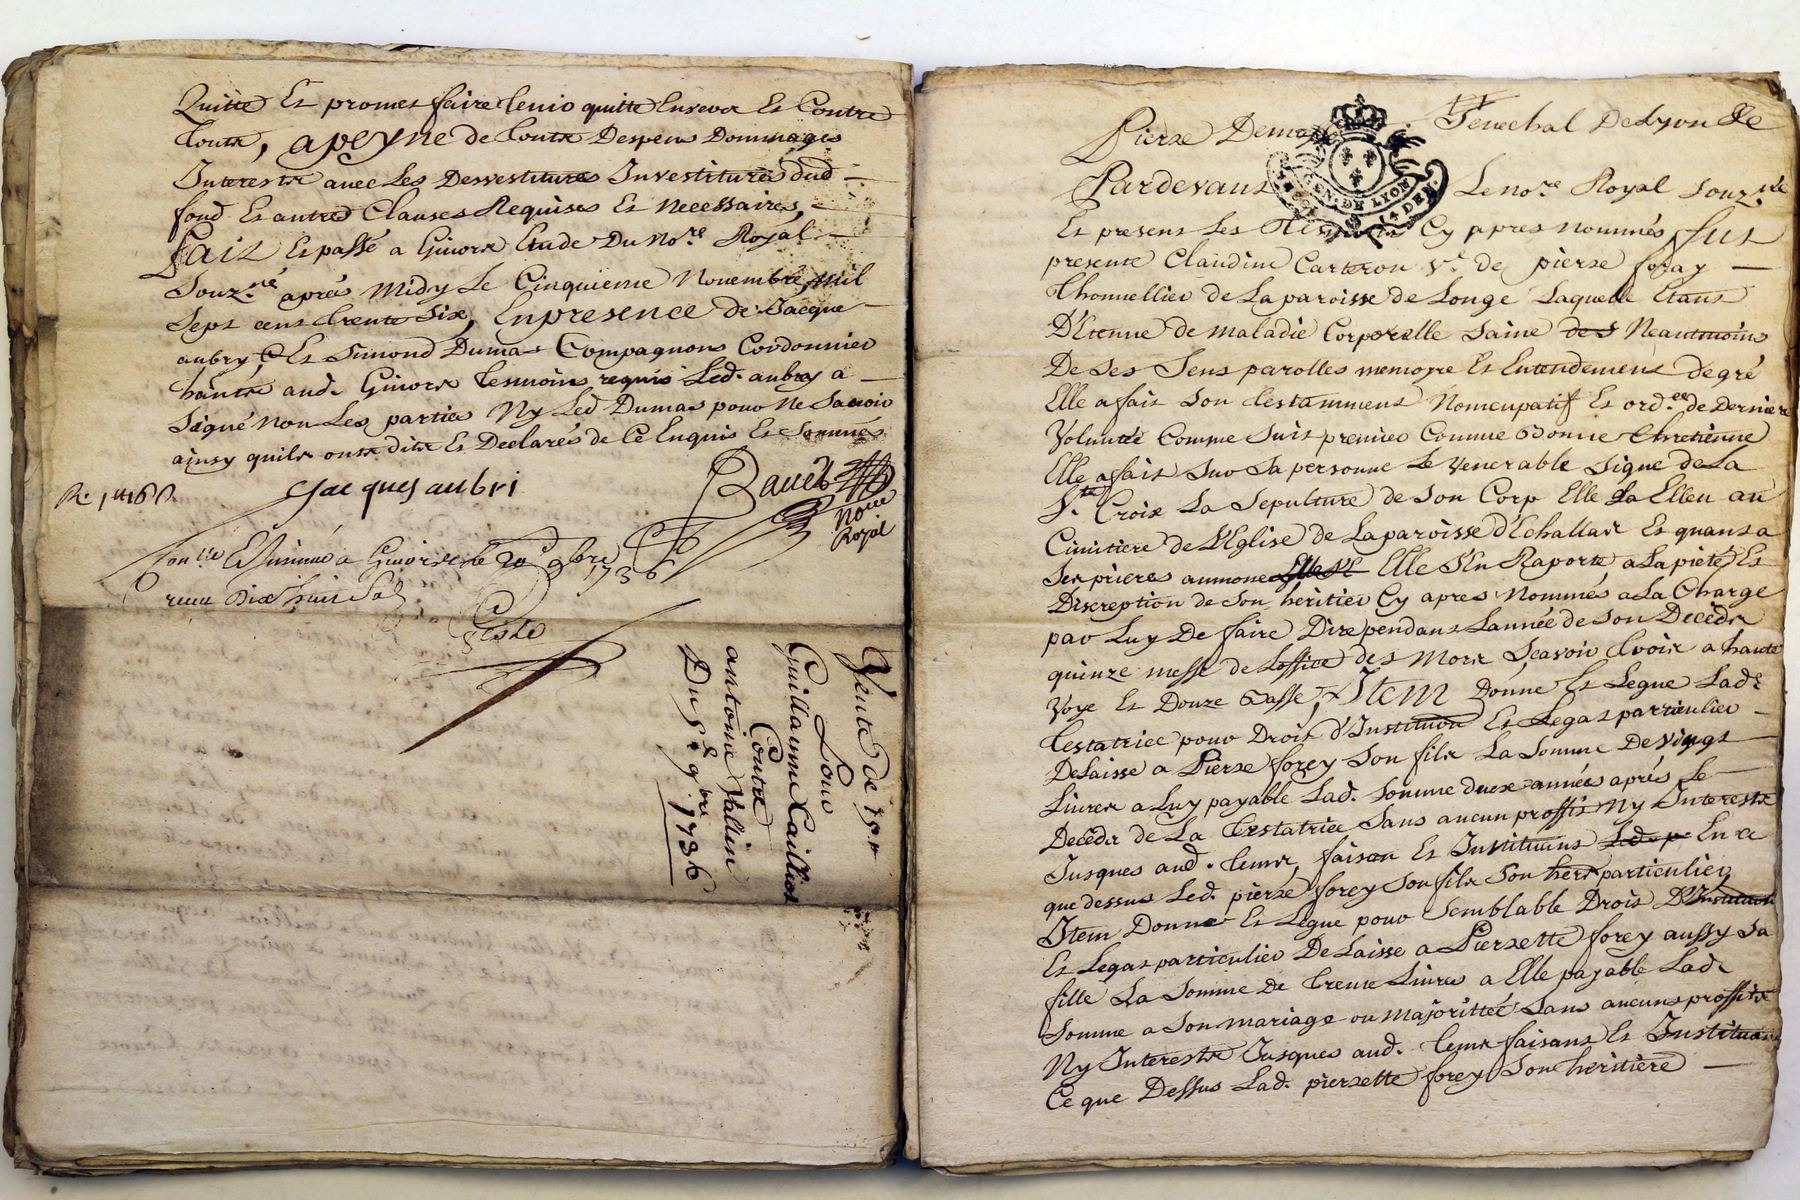 Quitte Et promet faire tenir quitte Envers Et Contre
touts, apeyne de touts Despens Dommages
Interests avec Les Devestitures Investitures dud
fond Et autres Clauses Requises Et necessaires,
fait Et passé a Givors Etude Du No.re Royal
Souz.né aprés Midy Le Cinquieme Novembre Mil
Sept cens trente Six, En presence de Jacque
aubry, Et Simond Dumas Compagnons Cordonnier
h'ants aud. Givors tesmoins requis Led. aubry a
signé non Les parties Ny Led Dumas pour Ne Savoir
ainsy quils onts dits Et Declarés de Ce Enquis Et Sommés
Jacques aubri
Nore
Royal
Con.lle Et Insinué a Givors le 20 9bre
1736
receu Dix huit Sols
Vente de
Pour
Guillaume Caillies
Contre
antoine Vallin
Du 5.e 9.bre 1736
Pierre Senechal De Lyon
GEN. DE LYON
Pardevant Le no.re Royal Souz.né
Et present Les Cy apres nommés fut
presente Claudine Carteron V.e de pierre foray
thonnellier de La paroisse de Longe Laquelle Etant
D'Etenue de maladie Corporelle saine des Neantmoins
De Ses Sens parolles memoyre Et Entendement de gré
Elle a fait Son testamment Nomcupatif Et ord.ce de Derniere
Volunté Comme Suit premier Comme bonne Chretienne
Elle a fait Sur Sa personne Le Venerable Signe de La
S.te Croix La Sepulture de Son Corp Elle La Elleu au
Cimitiere de L'Eglise de La paroisse d'Echallas Et quant a
Ses prieres aumones Elle S'En Raporte a La pieté Et
Discreption de Son heritier Cy apres Nommés a La Charge
par Luy De faire Dire pendant Lannée de Son Decéds
quinze messe de Loffice des Mors Scavoir trois a haute
Voye Et Douze Basse, Item Donne Et Legue Lad.e
testatrice pour Droit d'Institution Et Legat particulier
DeLaisse a Pierre forey Son fils La Somme De Vingt
Livres a Luy payable Lad. Somme deux années aprés Le
Decéds de La testatrice Sans aucun proffit Ny Interests
Jusques aud. tems, faisant Et Instituant Led. p En ce
que dessus Led. pierre forey Son fils Son here particulier
Item Donne Et Legue pour Semblable Droit D'Institution
Et Legat particulier DeLaisse a Pierrette forey aussy Sa
fille La Somme De trente Livres a Elle payable Lad.
Somme a Son mariage ou majorittée Sans aucuns proffits
Ny Interests Jusques aud. tems faisant Et Instituant
Ce que Dessus Lad. pierrette forey Son heritiere